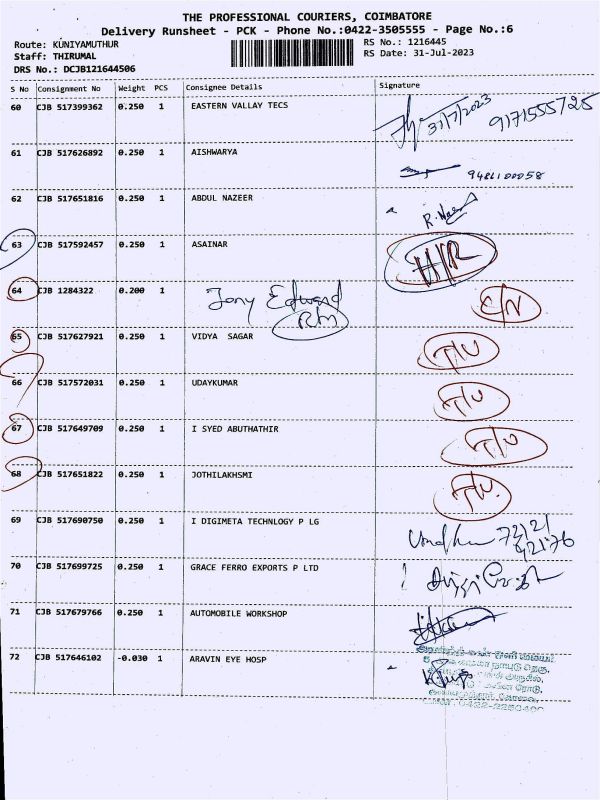 THE PROFESSIONAL COURIERS, COIMBATORE
Delivery Runsheet - PCK - Phone No.:0422-3505555 - Page No.:6
Route: KUNIYAMUTHUR RS No.: 1216445
Staff: THIRUMAL RS Date: 31-Jul-2023
DRS No.: DCJB121644506
S No Consignment No Weight PCS Consignee Details Signature
60 CJB 517399362 0.250 1 EASTERN VALLAY TECS 31/7/2023 9171555725
61 CJB 517626892 0.250 1 AISHWARYA
62 CJB 517651816 0.250 1 ABDUL NAZEER
63 CJB 517592457 0.250 1 ASAINAR H/R
64 CJB 1284322 0.200 1 Tony Edward
65 CJB 517627921 0.250 1 VIDYA SAGAR T/U
66 CJB 517572031 0.250 1 UDAYKUMAR T/U
67 CJB 517649709 0.250 1 I SYED ABUTHATHIR T/U
68 CJB 517651822 0.250 1 JOTHILAKHSMI T/U
69 CJB 517690750 0.250 1 I DIGIMETA TECHNLOGY P LG
70 CJB 517699725 0.250 1 GRACE FERRO EXPORTS P LTD
71 CJB 517679766 0.250 1 AUTOMOBILE WORKSHOP
72 CJB 517646102 -0.030 1 ARAVIN EYE HOSP